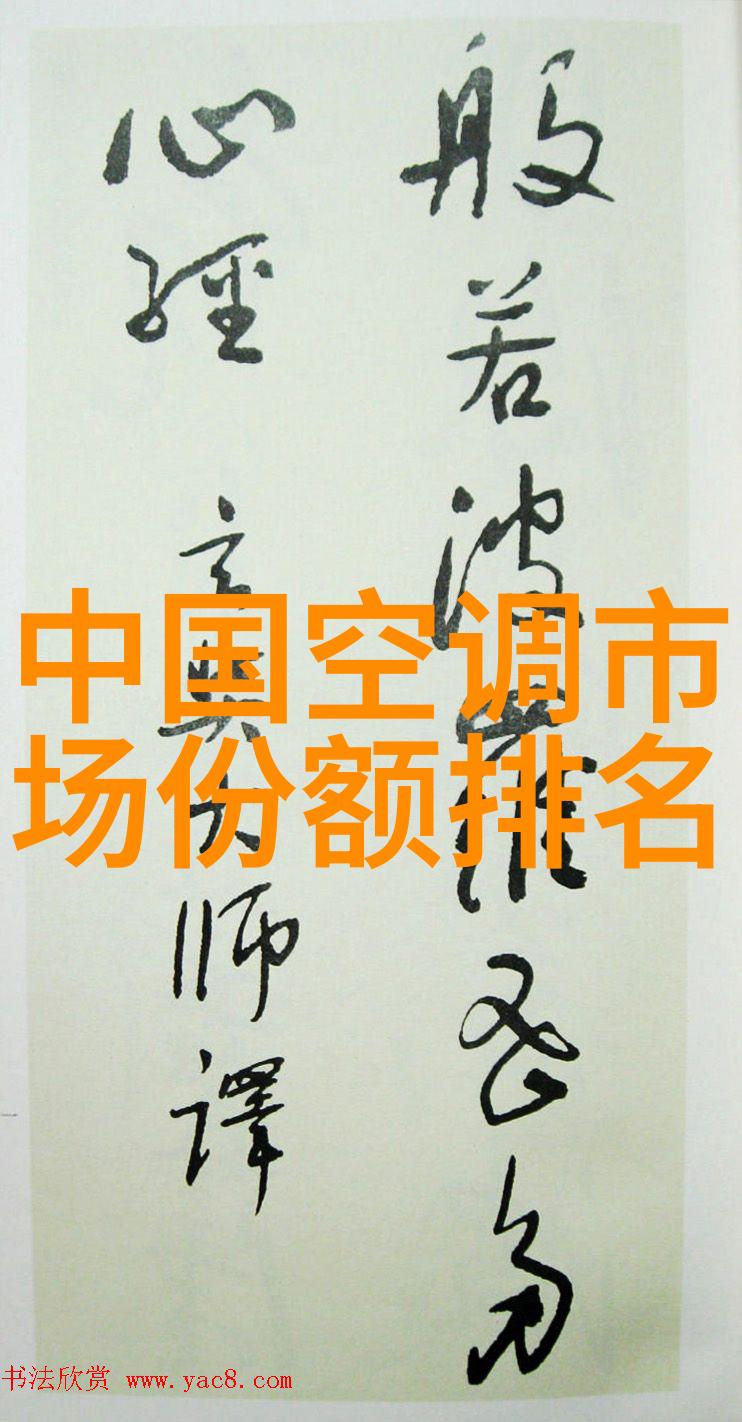 般若波羅蜜多
心經 玄奘大师譯
中国空调市
场份额排名
书法欣赏 www.yac8.com